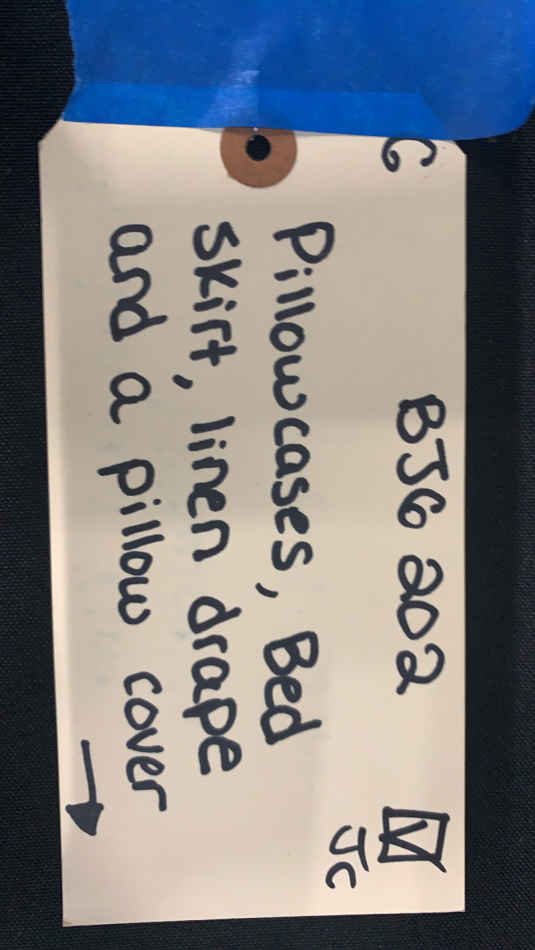 G
BJG 202
JC
Pillowcases, Bed
skirt, linen drape
and a pillow cover